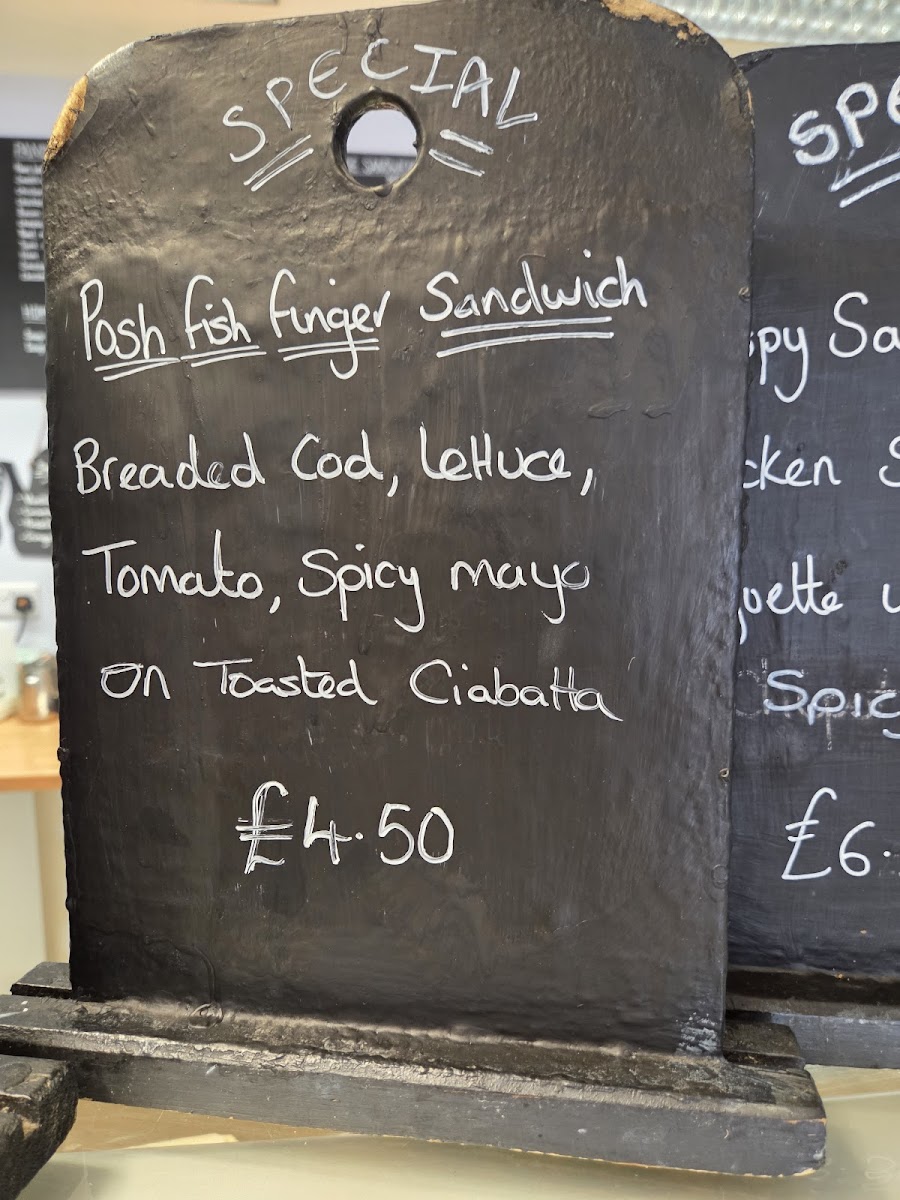 SPECIAL
Posh fish finger Sandwich
Breaded Cod, Lettuce,
Tomato, Spicy mayo
on Toasted Ciabatta
£4.50
SPE
py Sa
cken S
uette
Spic
£6.